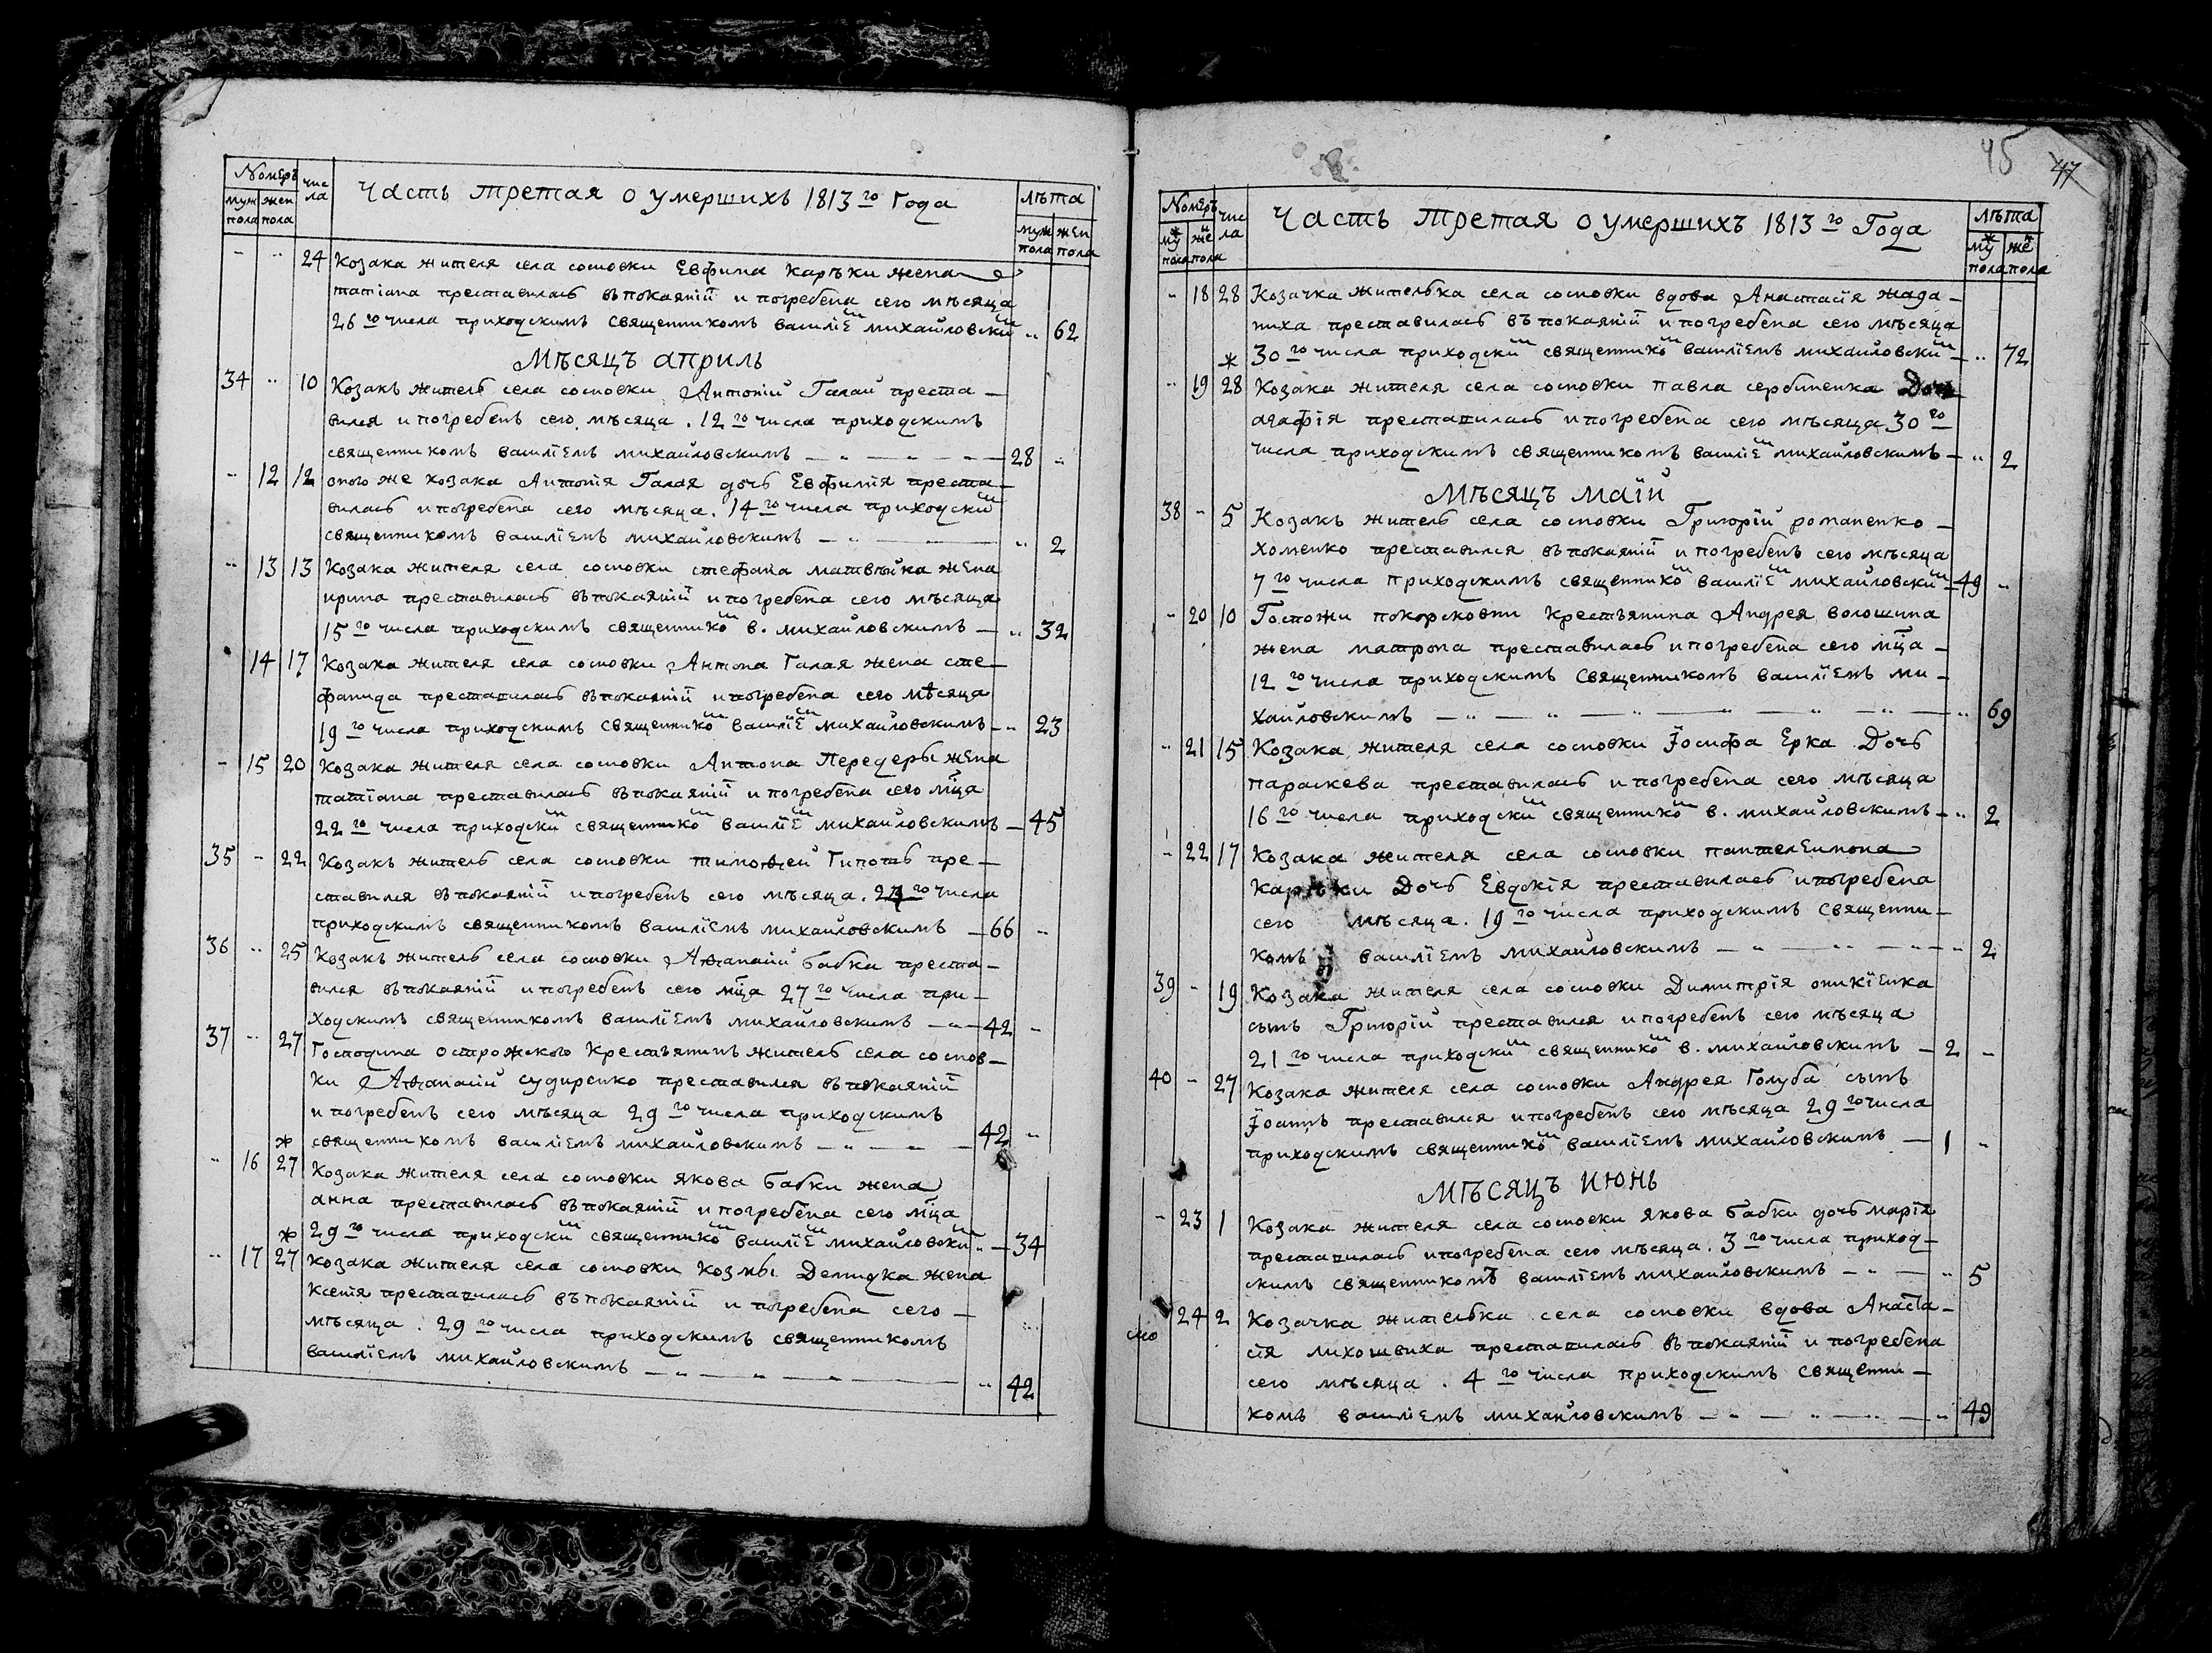 Номеръ чис ла Часть третая о умершихъ 1813го Года лѣта
муж пола жен пола муж пола жен пола
- " 24 Козака жителя села сосновки Евфима Карѣки жена
татіана преставилась въ покаяніи и погребена сего мѣсяца
26го числа приходскимъ священникомъ василіем михайловским " 62
Мѣсяцъ априль
34 " 10 Козакъ житель села сосновки Антоній Галай преста-
вился и погребенъ сего мѣсяца. 12го числа приходскимъ
священникомъ василіемъ михайловскимъ 28 "
" 12 12 оного же козака Антонія Галая дочь Евфимія преста-
вилась и погребена сего мѣсяца. 14го числа приходским
священникомъ василіемъ михайловскимъ " 2
" 13 13 Козака жителя села сосновки стефана матвѣйка жена
ирина преставилась въ покаяніи и погребена сего мѣсяца
15го числа приходскимъ священником в. михайловскимъ " 32
" 14 17 Козака жителя села сосновки Антона Галая жена сте-
фанида преставилась въ покаяніи и погребена сего мѣсяца
19го числа приходскимъ священником василіем михайловскимъ " 23
- 15 20 Козака жителя села сосновки Антона Передеры жена
татіана преставилась въ покаяніи и погребена сего мца
22го числа приходским священником василіем михайловскимъ - 45
35 - 22 Козакъ житель села сосновки тимоѳей Гипоть пре-
ставился въ покаяніи и погребенъ сего мѣсяца. 24го числа
приходскимъ священникомъ василіемъ михайловскимъ 66 "
36 " 25 Козакъ житель села сосновки Аѳанасій бабка преста-
вился въ покаяніи и погребенъ сего мца 27го числа при-
ходскимъ священникомъ василіемъ михайловскимъ 42 -
37 " 27 Господина острожского Крестьянинъ житель села соснов-
ки Аѳанасій судиренко преставился въ покаяніи
и погребенъ сего мѣсяца 29го числа приходскимъ
* священникомъ василіемъ михайловскимъ 42 "
" 16 27 Козака жителя села сосновки якова бабки жена
анна преставилась въ покаяніи и погребена сего мца
* 29го числа приходским священником василіем михайловским " 34
" 17 27 Козака жителя села сосновки Козмы Демидка жена
Ксенія преставилась въ покаяніи и погребена сего -
мѣсяца. 29го числа приходскимъ священникомъ
василіемъ михайловскимъ " 42
45 47
Номеръ чис ла Часть третая о умершихъ 1813го Года лѣта
муж пола жен пола муж пола жен пола
" 18 28 Козачка жителька села сосновки вдова Анастасія жада-
ниха преставилась въ покаяніи и погребена сего мѣсяца
* 30го числа приходским священником василіемъ михайловским " 72
" 19 28 Козака жителя села сосновки павла сербиненка Дочь
агафія преставилась и погребена сего мѣсяца 30го
числа приходскимъ священникомъ василіем михайловскимъ " 2
Мѣсяцъ маій
38 - 5 Козакъ житель села сосновки Григорій романенко -
хоменко преставился въ покаяніи и погребенъ сего мѣсяца
7го числа приходскимъ священником василіем михайловским 49 "
- 20 10 Госпожи покорсковни Крестьянина Андрея волошина
жена матрона преставилась и погребена сего мца -
12го числа приходскимъ священникомъ василіемъ ми-
хайловскимъ " 69
" 21 15 Козака жителя села сосновки Іосифа Ерка Дочь
параскева преставилась и погребена сего мѣсяца
16го числа приходским священником в. михайловскимъ " 2
- 22 17 Козака жителя села сосновки пантелеимона
Карѣки Дочь Евдокія преставилась и погребена
сего мѣсяца. 19го числа приходскимъ священни-
комъ василіемъ михайловскимъ " 2
39 - 19 Козака жителя села сосновки Димитрія оникіенка
сынъ Григорій преставился и погребенъ сего мѣсяца
21го числа приходским священником в. михайловскимъ 2 -
40 - 27 Козака жителя села сосновки Андрея Голуба сынъ
Іоаннъ преставился и погребенъ сего мѣсяца 29го числа
приходскимъ священником василіемъ михайловскимъ 1 "
Мѣсяцъ июнь
- 23 1 Козака жителя села сосновки якова бабки дочь марія
преставилась и погребена сего мѣсяца. 3го числа приход-
скимъ священникомъ василіемъ михайловскимъ " 5
24 2 Козачка жителька села сосновки вдова Анаста-
сія лихошвиха преставилась въ покаяніи и погребена
сего мѣсяца. 4го числа приходскимъ священни-
комъ василіемъ михайловскимъ " 49